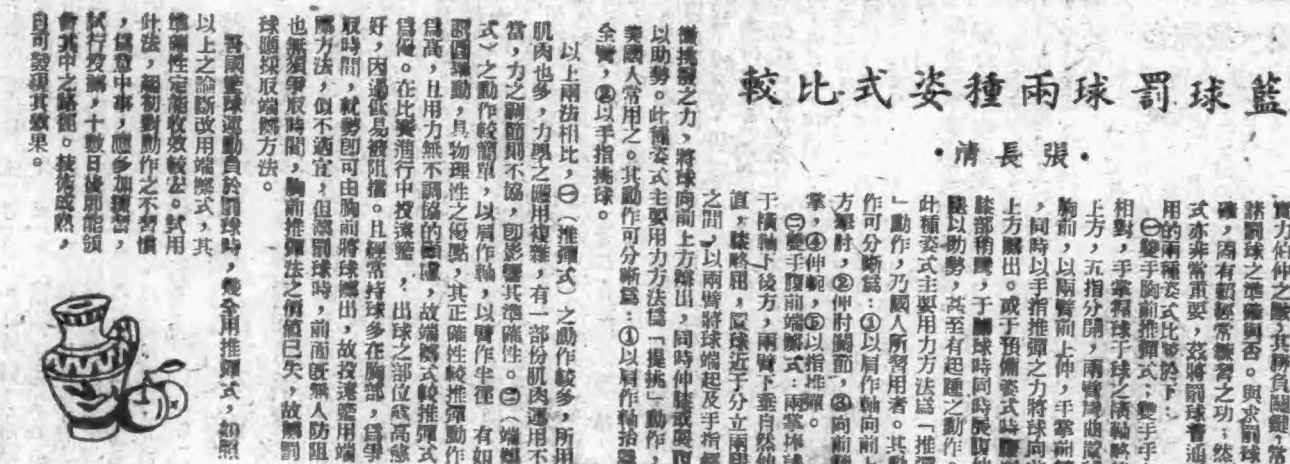 籃球罰球兩種姿式比較
·張長清·
實力伯仲之隊，其勝負關鍵，常
諸罰球之準確與否。與求罰球
確，固有賴經常練習之功；然
式亦非常重要，茲將罰球普通
用的兩種姿式比較於下：
㊀雙手胸前推彈式：雙手手
相對，手掌握球于球之橫軸略
上方，五指分開，兩臂彎曲置
胸前，以兩臂前上伸，手掌前
，同時以手指推彈之力將球向前
上方擲出。或于預備姿式時
膝部稍彎，于擲球時同時展腹伸
膝以助勢，甚至有起踵之動作。
此種姿式主要用力方法爲「推彈
」動作，乃國人所習用者。其動
作可分晰爲：①以肩作軸向前上
方舉肘，②伸肘關節，③向前
掌，④伸腕，⑤以指推彈。
㊁雙手腹前端擲式：兩掌捧球
于橫軸下後方，兩臂下垂自然伸
直，膝略屈，置球近于分立兩腿
之間，以兩臂將球端起及手指
微挑撥之力，將球向前上方擲出，同時伸膝或展腹
以助勢。此種姿式主要用力方法爲「提挑」動作，
美國人常用之。其動作可分晰爲：①以肩作軸抬舉
全臂，②以手指挑球。
以上兩法相比，㊀（推彈式）之動作較多，所用
肌肉也多，力學之應用複雜，有一部份肌肉運用不
當，力之調節則不協，卽影響其準確性。㊁（端擲
式）之動作較簡單，以肩作軸，以臂作半徑，有如
圓運動，具物理性之優點，其正確性較推彈動作
爲高，且用力無不調協的顧慮，故端擲式較推彈式
爲優。在比賽進行中投遠籃，出球之部位愈高愈
好，因過低易被阻擋。且經常持球多在胸部，爲爭
取時間，就勢卽可由胸前將球擲出，故投遠籃用端
擲方法，似不適宜，但罰球時，前面旣無人防阻
也無須爭取時間，胸前推彈法之價値已失，故罰
球應採取端擲方法。
吾國籃球運動員於罰球時，幾全用推彈式，如照
以上之論斷改用端擲式，其
準確性定能收效較宏。試用
此法，起初對動作之不習慣
，爲意中事，應多加練習，
試行投擲，十數日後卽能領
會其中之路徑。技術成熟，
自可發現其效果。